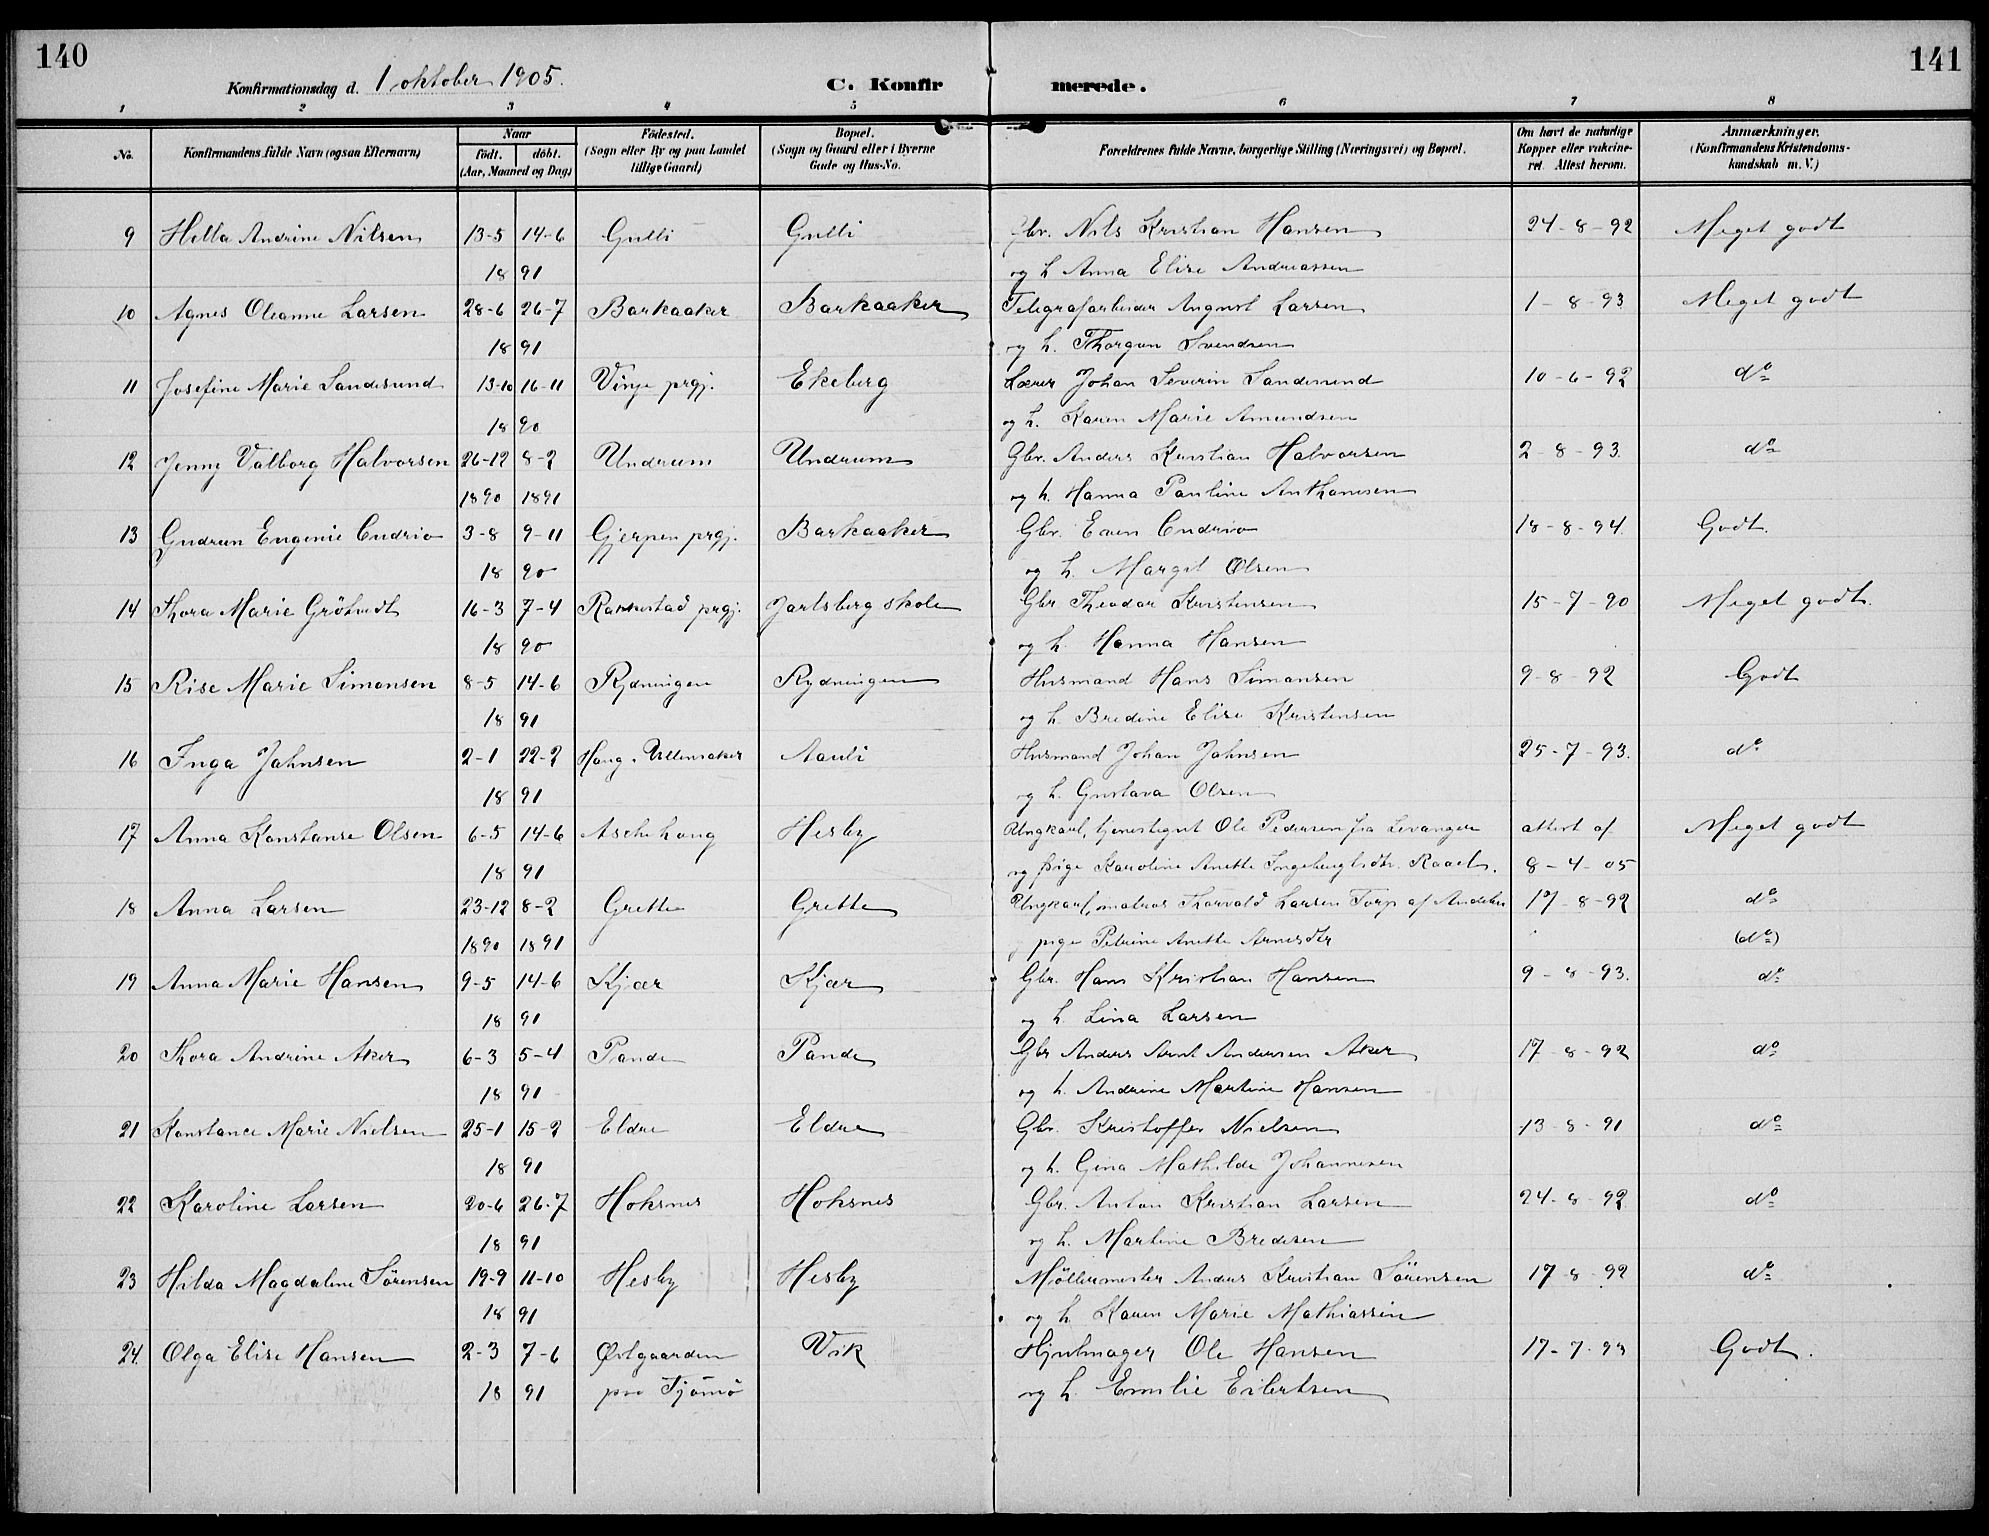 140
141
Konfirmationsdag d. 1 oktober 1905.
C. Konfir merede.
1 2 3 4 5 6 7 8
No.
Konfirmandens fulde Navn (ogsaa Efternavn)
Naar
födt. döbt.
(Aar, Maaned og Dag)
Födested.
(Sogn eller By og paa Landet
tillige Gaard)
Bopæl.
(Sogn og Gaard eller i Byerne
Gade og Hus-No.
Forældrenes fulde Navne, borgerlige Stilling (Næringsvei) og Bopæl.
Om havt de naturlige
Kopper eller vakcine-
ret. Attest herom.
Anmærkninger.
(Konfirmandens Kristendoms-
kundskab m. V.)
9 Hella Andrine Nilsen 13-5 14-6 Gulli Gulli Gbr. Nils Kristian Hansen 24-8-92 Meget godt
18 91 og h. Anna Elise Andreassen
10 Agnes Oleanne Larsen 28-6 26-7 Barkaaker Barkaaker Telegrafarbeider August Larsen 1-8-93 Meget godt
18 91 og h. Thorgun Svendsen
11 Josefine Marie Sandesund 13-10 16-11 Vinje prgj. Ekeberg Lærer Johan Severin Sandesund 10-6-92 do
18 90 og h. Karen Marie Amundsen
12 Jenny Valborg Halvorsen 26-12 8-2 Undrum Undrum Gbr. Anders Kristian Halvorsen 2-8-93. do
1890 1891 og h. Hanna Pauline Anthonisen
13 Gudrun Eugenie 3-8 9-11 Gjerpen prgj. Barkaaker Gbr. Even 18-8-94. Godt.
18 90 og h. Margit Olsen
14 Thora Marie Grötvedt 16-3 7-4 Rakkestad prgj. Jarlsberg skole Gbr Theodor Kristensen 15-7-90 Meget godt.
18 90 og h. Hanna Hansen
15 Rise Marie Simonsen 8-5 14-6 Rydningen Rydningen Husmand Hans Simonsen 9-8-92 Godt
18 91 og h. Bredine Elise Kristensen
16 Inga Jahnsen 2-1 22-2 Haug, Ullensaker Aauli Husmand Johan Jahnsen 25-7-93. do
18 91 og h. Gustava Olsen
17 Anna Konstanse Olsen 6-5 14-6 Aschehoug Hesby Ungkarl, tjenestegut Ole Pedersen fra Levanger attest af Meget godt
18 91 og pige Karoline Anette Ingebrigtsdtr. Raael. 8-4-05
18 Anna Larsen 23-12 8-2 Grette Grette Ungkarl, matros Thorvald Larsen Torp af Andebu 17-8-92 do
1890 1891 pige Petrine Anette Arnesdtr (do)
19 Anna Marie Hansen 9-5 14-6 Kjær Kjær Gbr. Hans Kristian Hansen 9-8-93. do
18 91 og h. Lina Larsen
20 Thora Andrine Aker 6-3 5-4 Pande Pande Gbr Anders Arnt Andersen Aker 17-8-92 do
18 91 og h. Andrine Martine Hansen
21 Konstance Marie Nielsen 25-1 15-2 Eldre Eldre Gbr. Kristoffer Nielsen 13-8-91 do
18 91 og h. Gina Mathilde Johannesen
22 Karoline Larsen 20-6 26-7 Hoksnes Hoksnes Gbr. Anton Kristian Larsen 24-8-92 do
18 91 og h. Martine Bredesen
23 Hilda Magdalene Sörensen 19-9 11-10 Hesby Hesby Möllermester Anders Kristian Sörensen 17-8-92 do
18 91 og h. Karen Marie Mathiassen
24. Olga Elise Hansen 2-3 7-6 Østgaarden Vik Hjulmager Ole Hansen 17-7-93 Godt.
18 91 paa Tjömö og h. Emilie Eilertsen